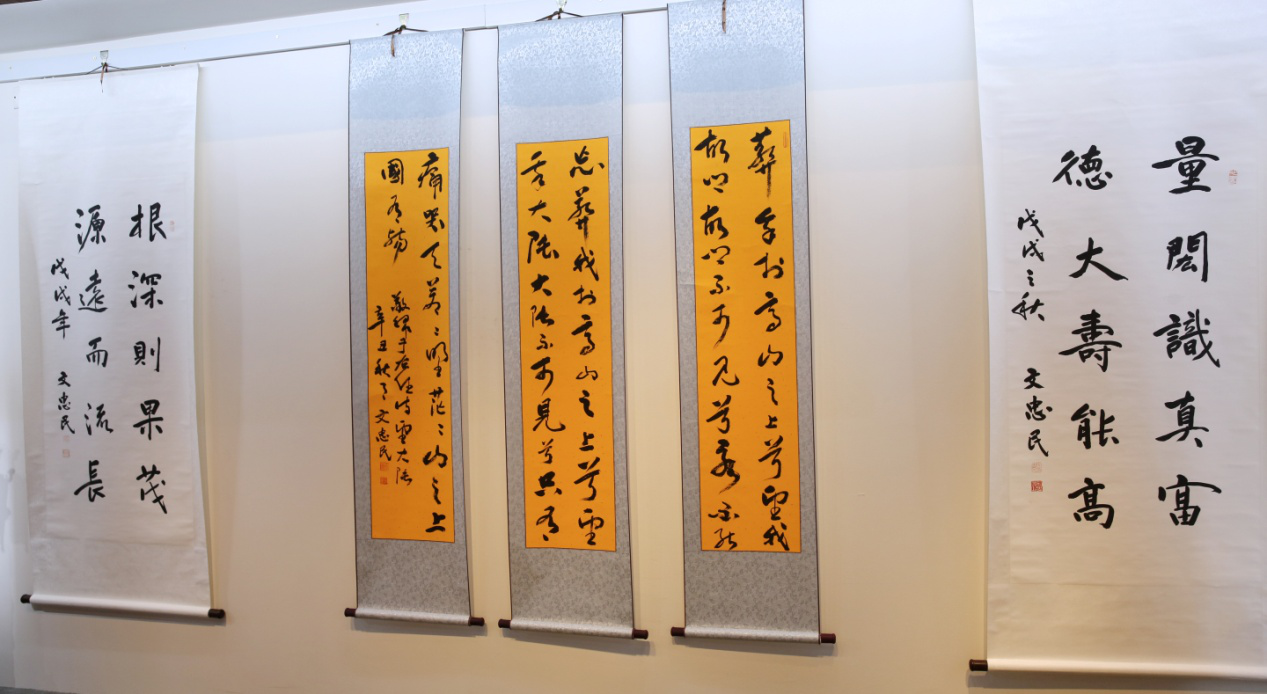 量閎識真富
德大壽能高
戊戌之秋 文忠民
葬余於高山之上兮望我
故鄉故鄉不可見兮永不能
忘葬我於高山之上兮望
我大陸大陸不可見兮只有
痛哭天蒼〻野茫〻山之上
國有殤
敬録于右任詩望大陸
辛丑秋月文忠民
根深則果茂
源遠而流長
戊戌年 文忠民